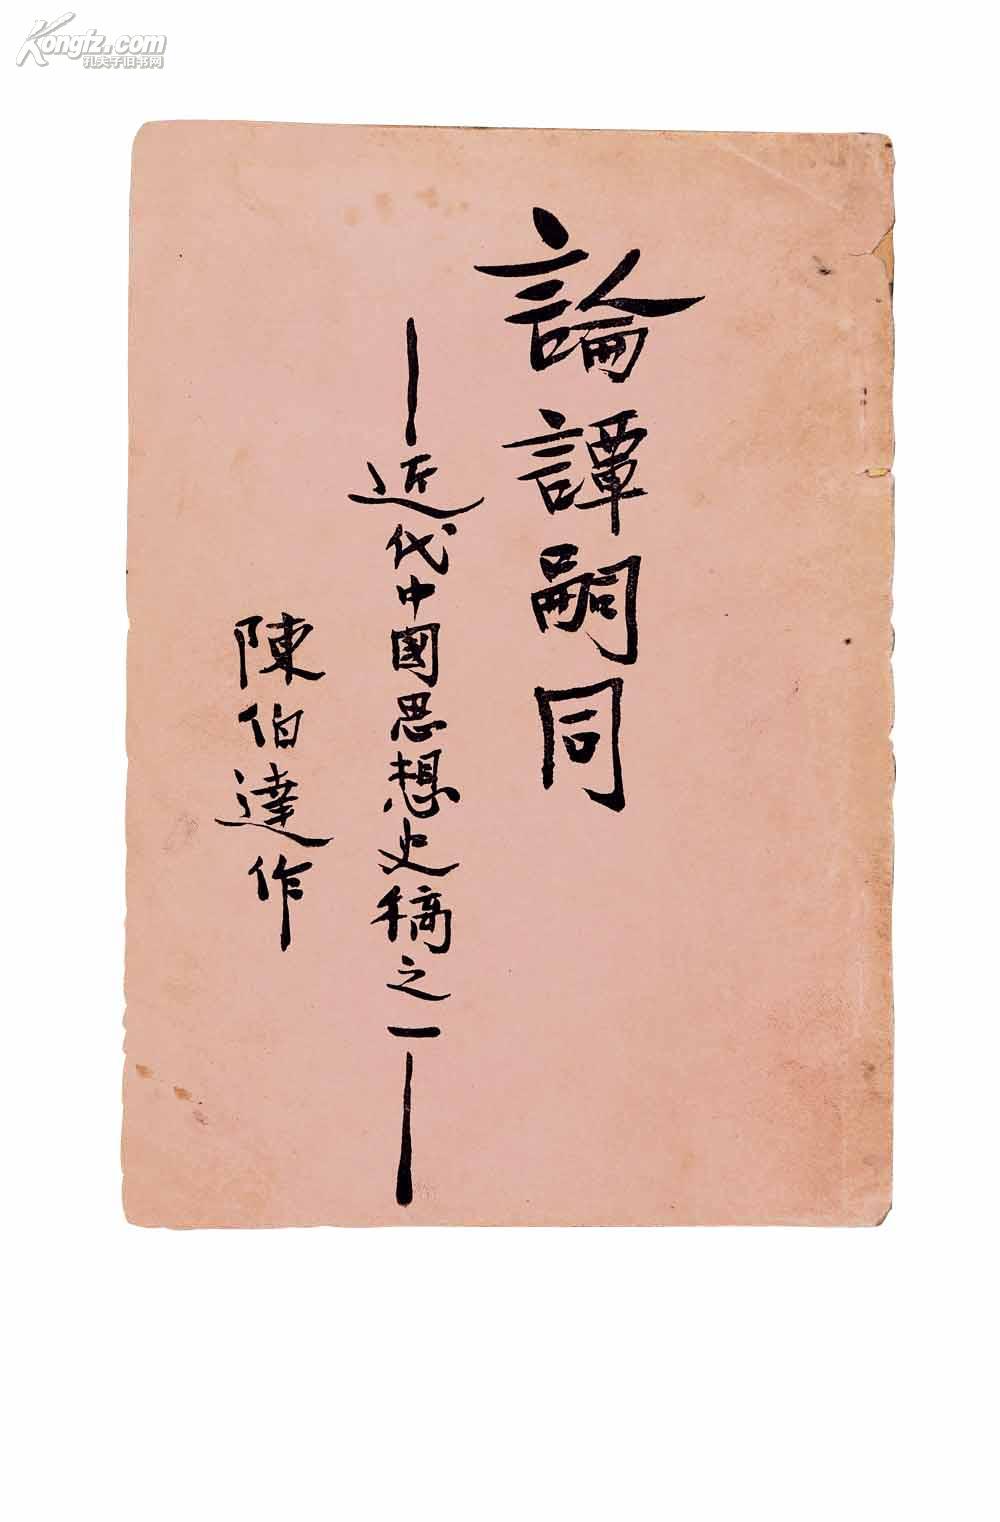 Kongfz.com
孔夫子旧书网
論譚嗣同
——近代中國思想史稿之一——
陳伯達作